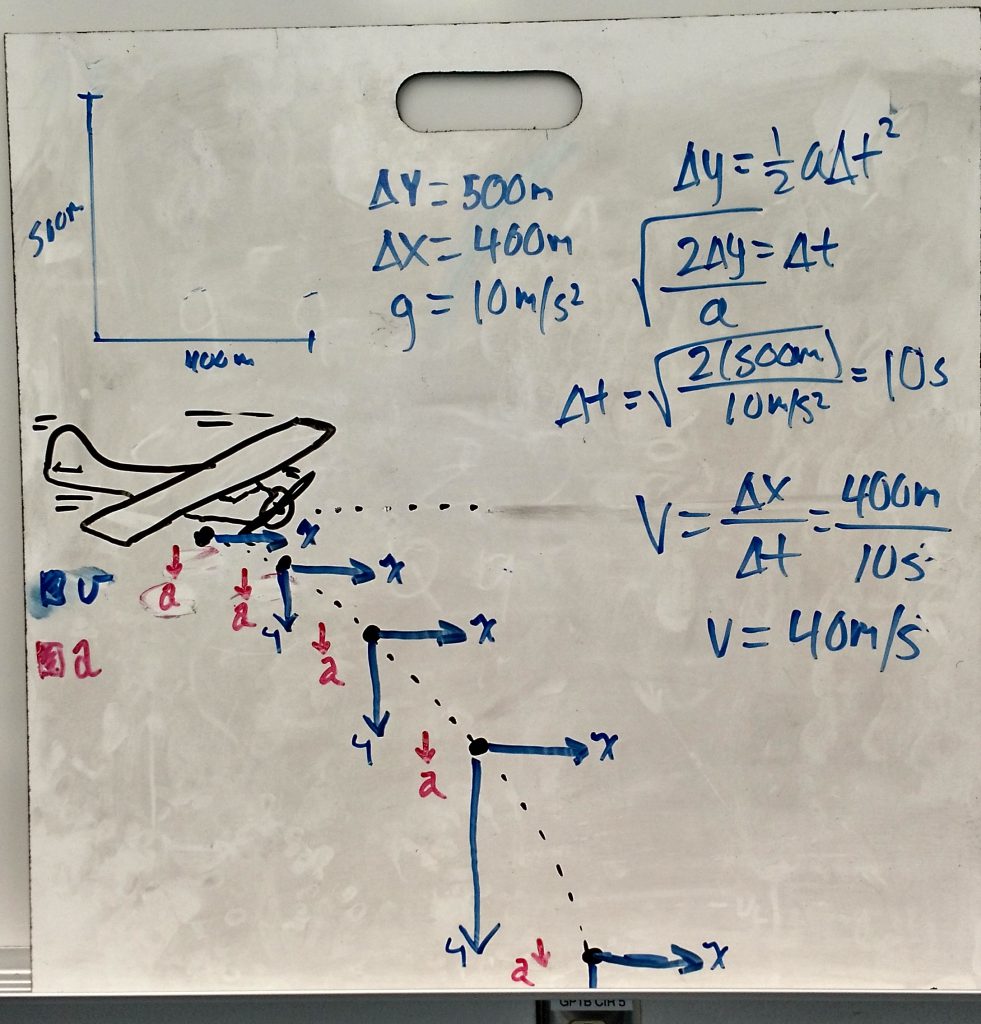 500m
400m
ΔY = 500m
ΔX = 400m
g = 10m/s²
Δy = 1/2 aΔt²
√(2Δy/a) = Δt
Δt = √(2(500m)/10m/s²) = 10s
V = ΔX/Δt = 400m/10s
V = 40m/s
x
a
x
v
a
y
x
a
a
y
x
a
y
x
a
GPTB CIR 5